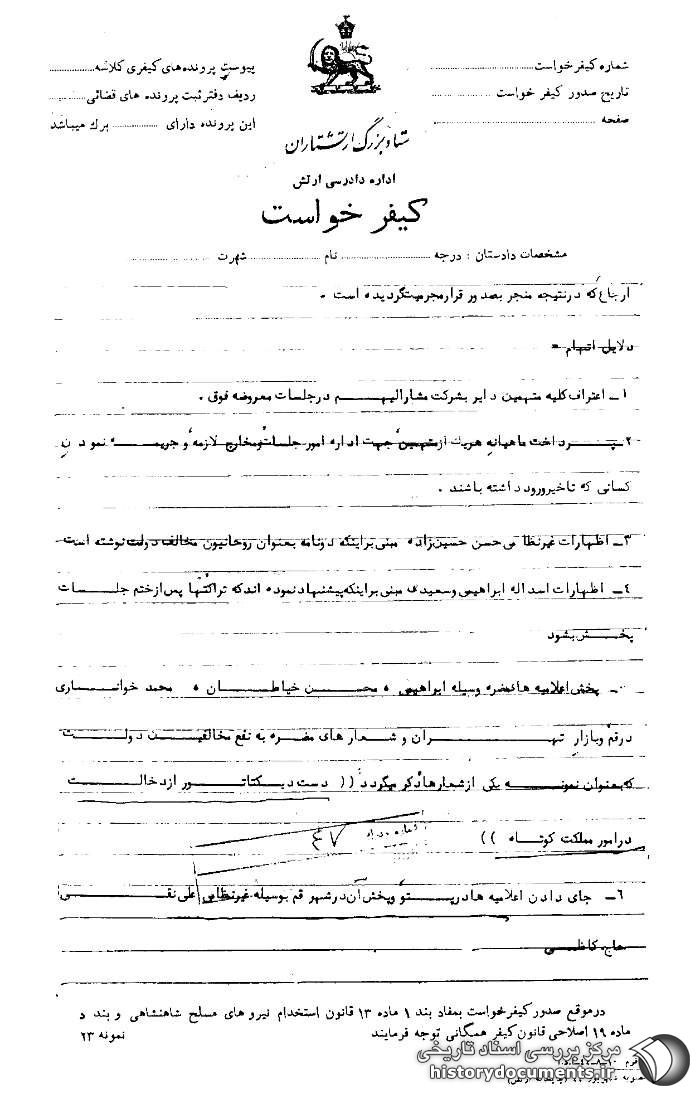 شماره کیفرخواست
تاریخ صدور کیفر خواست
صفحه
پیوست پرونده های کیفری کلاسه
ردیف دفتر ثبت پرونده های قضائی
این پرونده دارای برگ میباشد
ستاد بزرگ ارتشتاران
اداره دادرسی ارتش
کیفر خواست
مشخصات دادستان : درجه نام شهرت
ارجاع که درنتیجه منجر بصدور قرارمجرمیت گردیده است .
دلایل اتهام =
۱ــ اعتراف کلیه متهمین دایر بشرکت مشارالیهم درجلسات معروضه فوق .
۲ــ پرداخت ماهیانه هریك از متهمین جهت اداره امور جلسات و مخارج لازمه و جریمه نمودن
کسانی که تاخیر ورود داشته باشند .
۳ــ اظهارات غیرنظامی حسن حسین زاده مبنی براینکه دونامه بعنوان روحانیون مخالف دولت نوشته است
۴ــ اظهارات اسداله ابراهیمی وسعیدی مبنی براینکه پیشنهاد نموده اند که تراکتها پس ازختم جلسات
پخش بشود
پخش اعلامیه های مضره وسیله ابراهیمی ، محسن خیاطان ، محمد خوانساری
درقم وبازار تهران و شعار های مضره به نفع مخالفین دولت
که بعنوان نمونه یکی ازشعارها ذکر میگردد (( دست دیکتاتور ازدخالت
درامور مملکت کوتاه ))
۴۷
۶ــ جای دادن اعلامیه ها درپستو وپخش آن درشهر قم بوسیله غیرنظامی علی نقی
حاج کاظمی
درموقع صدور کیفرخواست بمفاد بند ۱ ماده ۱۳ قانون استخدام نیرو های مسلح شاهنشاهی و بند د
ماده ۱۹ اصلاحی قانون کیفر همگانی توجه فرمایند
نمونه ۲۳
مرکز بررسی اسناد تاریخی
historydocuments.ir